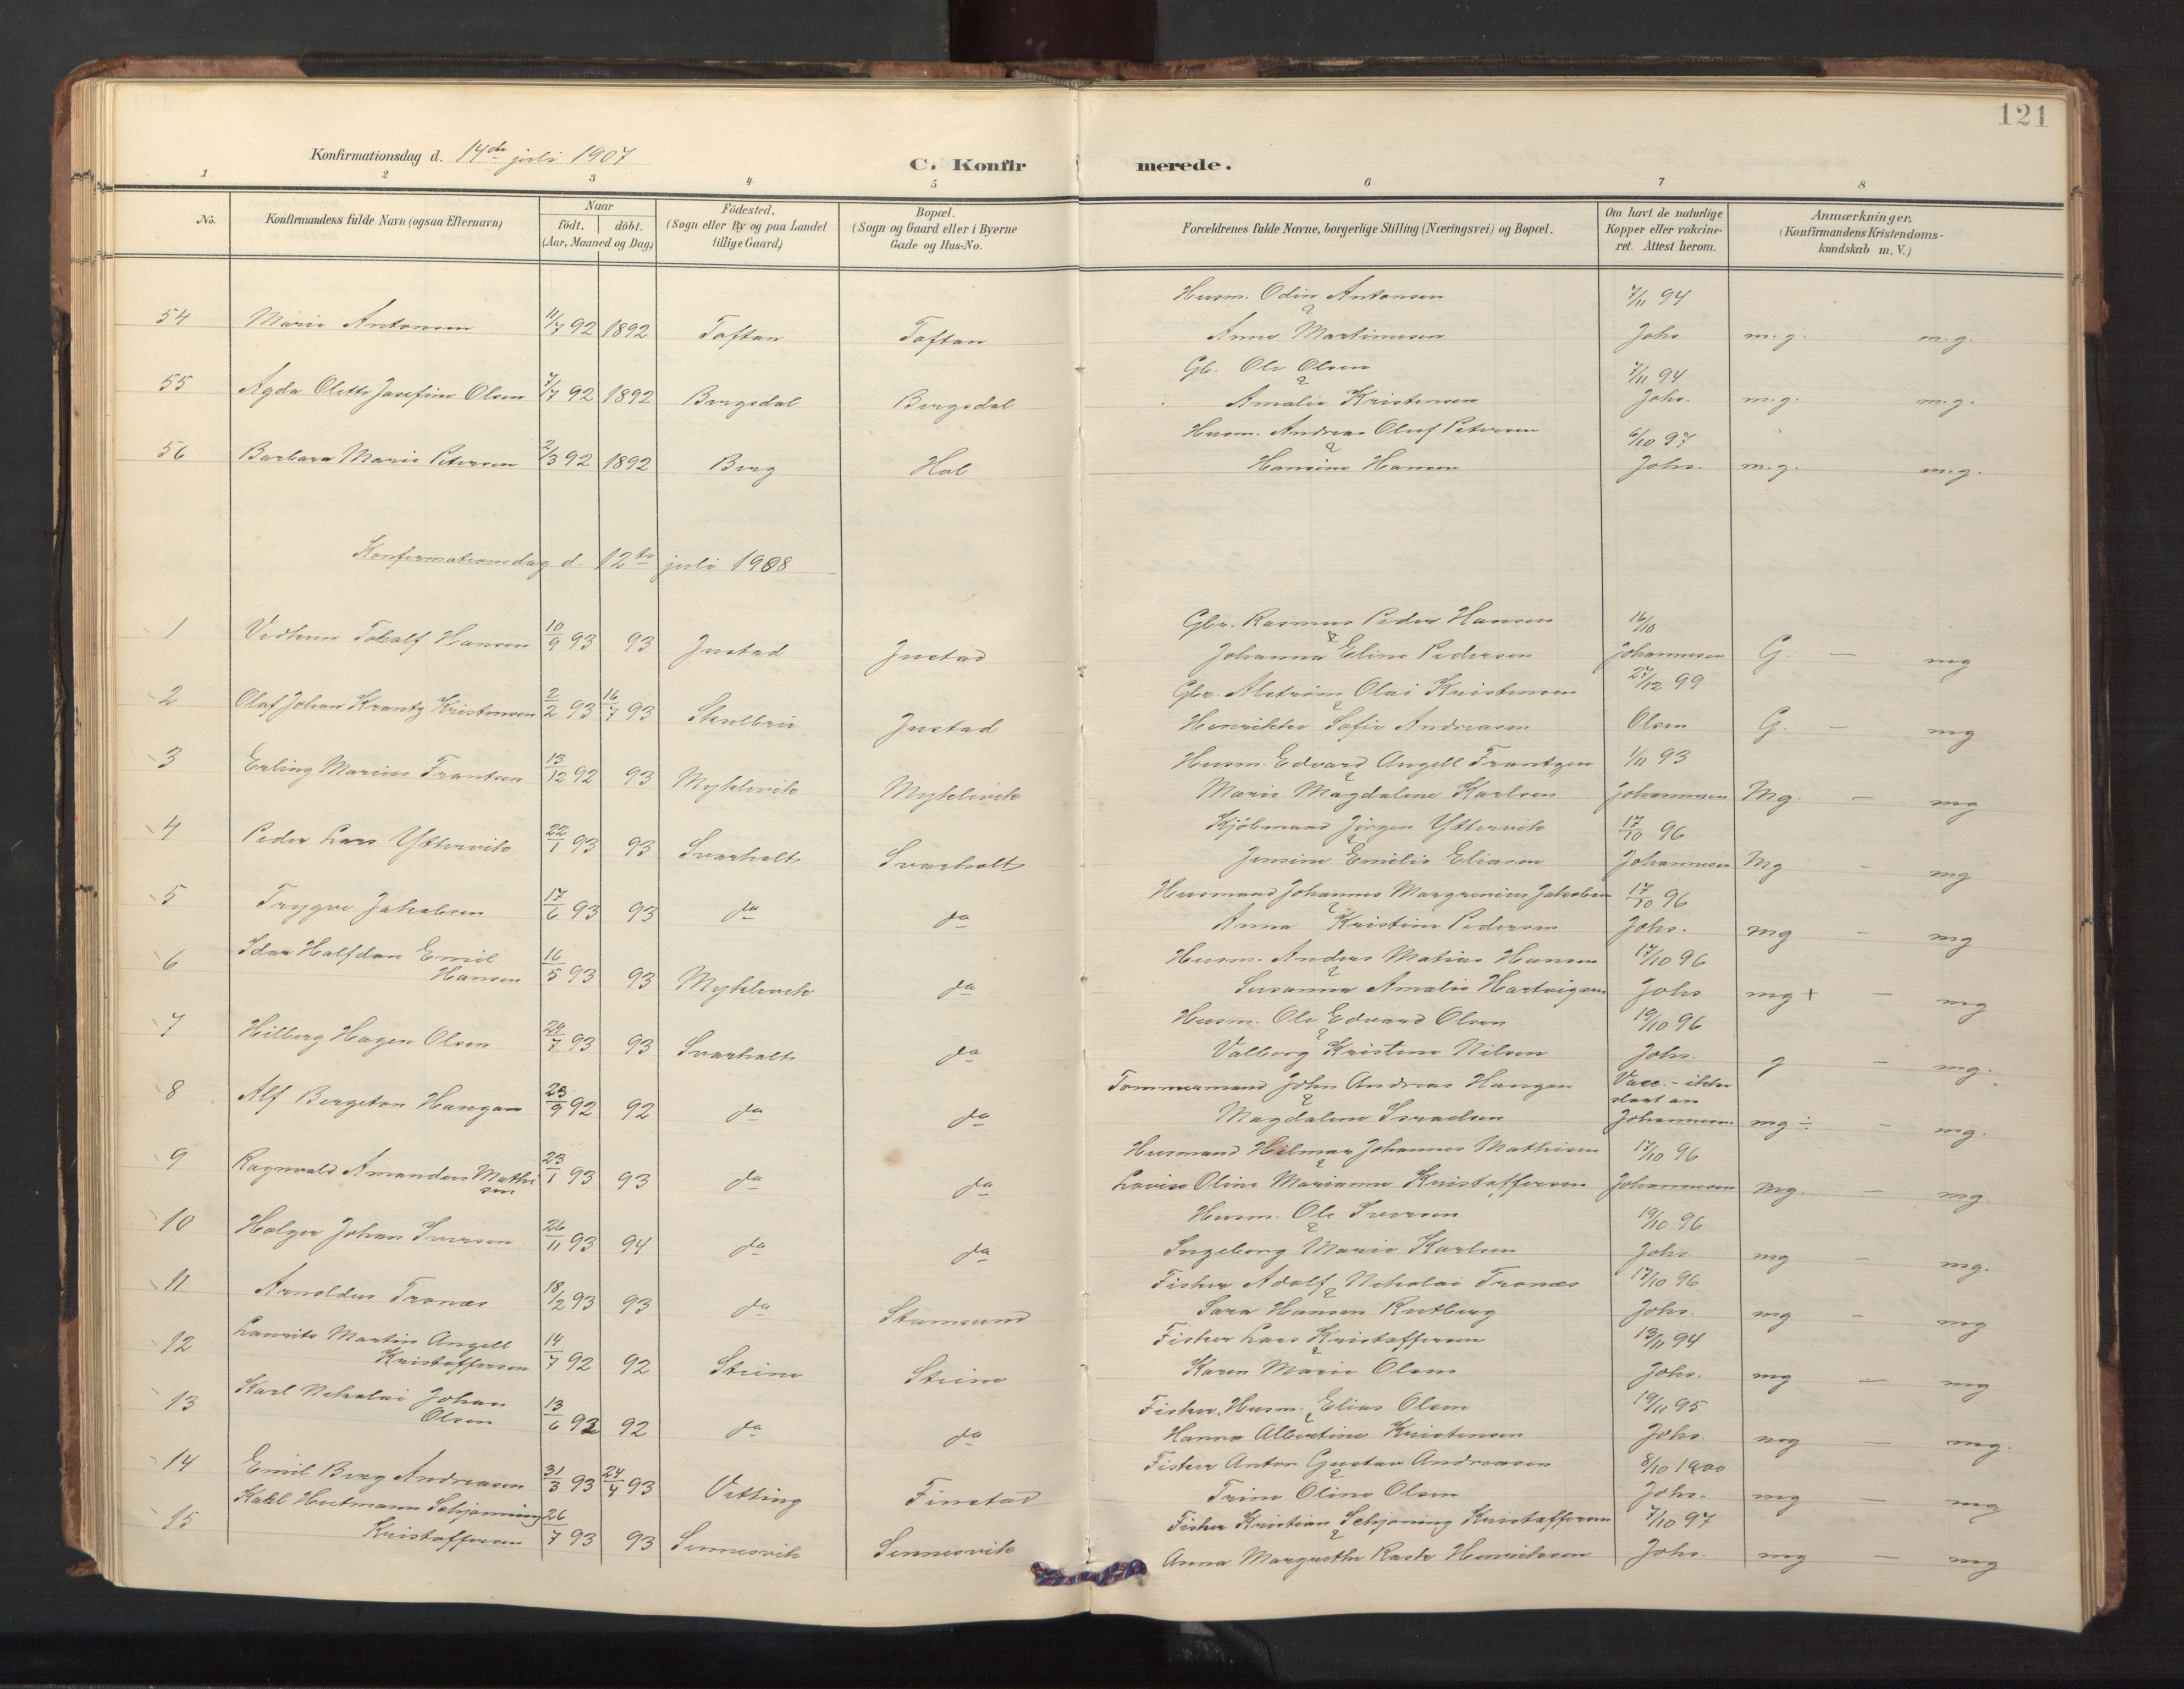 121
Konfirmationsdag d. 14de juli 1907
C. Konfirmerede.
1 2 3 4 5 6 7 8
No. Konfirmandens fulde Navn (ogsaa Efternavn) Naar födt. döbt. (Aar, Maaned og Dag) Födested. (Sogn eller By og paa Landet tillige Gaard) Bopæl. (Sogn og Gaard eller i Byerne Gade og Hus-No. Forældrenes fulde Navne, borgerlige Stilling (Næringsvei) og Bopæl. Om havt de naturlige Kopper eller vakcineret. Attest herom. Anmærkninger. (Konfirmandens Kristendomskundskab m. V.)
Husm. Odin Antonsen 7/11 94
54 Marie Antonsen 11/7 92 1892 Toftan Toftan Anna Martinusen Johs m.g. m.g.
Gb. Ole Olsen 7/11 94
55 Agda Olette Josefine Olsen 7/7 92 1892 Bergsdal Bergsdal Amalie Kristensen Johs. m.g. m.g.
Husm. Andreas Oluf Petersen 6/10 97
56 Barbara Marie Petersen 2/3 92 1892 Berg Hol Hansine Hansen Johs. m.g. m.g.
Konfirmationsdag d. 12te juli 1908
Gbr. Rasmus Peder Hansen 16/10
1 Hansen 10/9 93 93 Justad Justad Johanna Eline Pedersen Johannesen G. — mg
Gbr. Alström Olai Kristensen 27/12 99
2 Olaf Johan Krantz Kristensen 2/2 93 16/7 93 Skulbru Justad Henrikke Sofie Andreasen Olsen G. — mg
Husm. Edvard Angell Frantzen 1/11 93
3 Erling Marius Frantsen 13/12 92 93 Myklevik Myklevik Marie Magdalene Karlsen Johannesen Mg. — mg
Kjöbmand Jörgen Yttervik 17/10 96
4 Peder Lars Yttervik 22/1 93 93 Svarholt Svarholt Jensine Emilie Eliasen Johannesen Mg - mg
Husmand Johannes Margrenius Jakobsen 17/10 96
5 Trygve Jakobsen 17/6 93 93 da da Anna Kristine Pedersen Johs. mg - mg
Idar Halfdan Emil Husm. Anders Matias Hansen 17/10 96
6 Hansen 16/5 93 93 Myklevik da Susanna Amalie Hartvigsen Johs mg + — mg
Husm. Ole Edvard Olsen 19/10 96
7 Hilberg Hagen Olsen 29/7 93 93 Svarholt da Valborg Kristine Nilsen Johs. g — mg.
Tømmermand John Andreas Hangan Vacc. - ikke slaat an
8 Alf Bergeton Hangan 23/9 92 92 da da Magdalene Israelsen Johannesen mg ÷ - mg.
Husmand Hilmar Johannes Mathisen 17/10 96
9 Ragnvald Amandus Mathisen 23/1 93 93 da da Lovise Oline Marianne Kristoffersen Johannesen mg. — mg.
Husm. Ole Iversen 19/10 96
10 Holger Johan Iversen 26/11 93 94 da da Ingeborg Marie Karlsen Johs. mg — mg.
Fisker Adolf Nikolai Tronæs 17/10 96
11 Arnoldus Tronæs 18/2 93 93 da Stamsund Sara Hansen Rutberg Johs. mg - mg
Laurits Martin Angell Fisker Lars Kristoffersen 13/11 94
12 Kristoffersen 14/7 92 92 Steine Steine Karen Marie Olsen Johs. mg — mg
Karl Nikolai Johan Fisker, Husm. Elias Olsen 19/11 95
13 Olsen 13/6 92 92 da da Hanna Albertine Kristensen Johs. mg — mg.
Fisker Anton Gustav Andreasen 8/10 1900
14 Emil Berg Andreasen 31/3 93 24/4 93 Vetting Finstad Trine Oline Olsen Johs. mg — mg
Karl Hutmann Schjønning Fisker Kristian Schjøning Kristoffersen 7/10 97
15 Kristoffersen 26/7 93 93 Sennesvik Sennesvik Anna Margrethe Rask Henriksen Johs. mg — mg